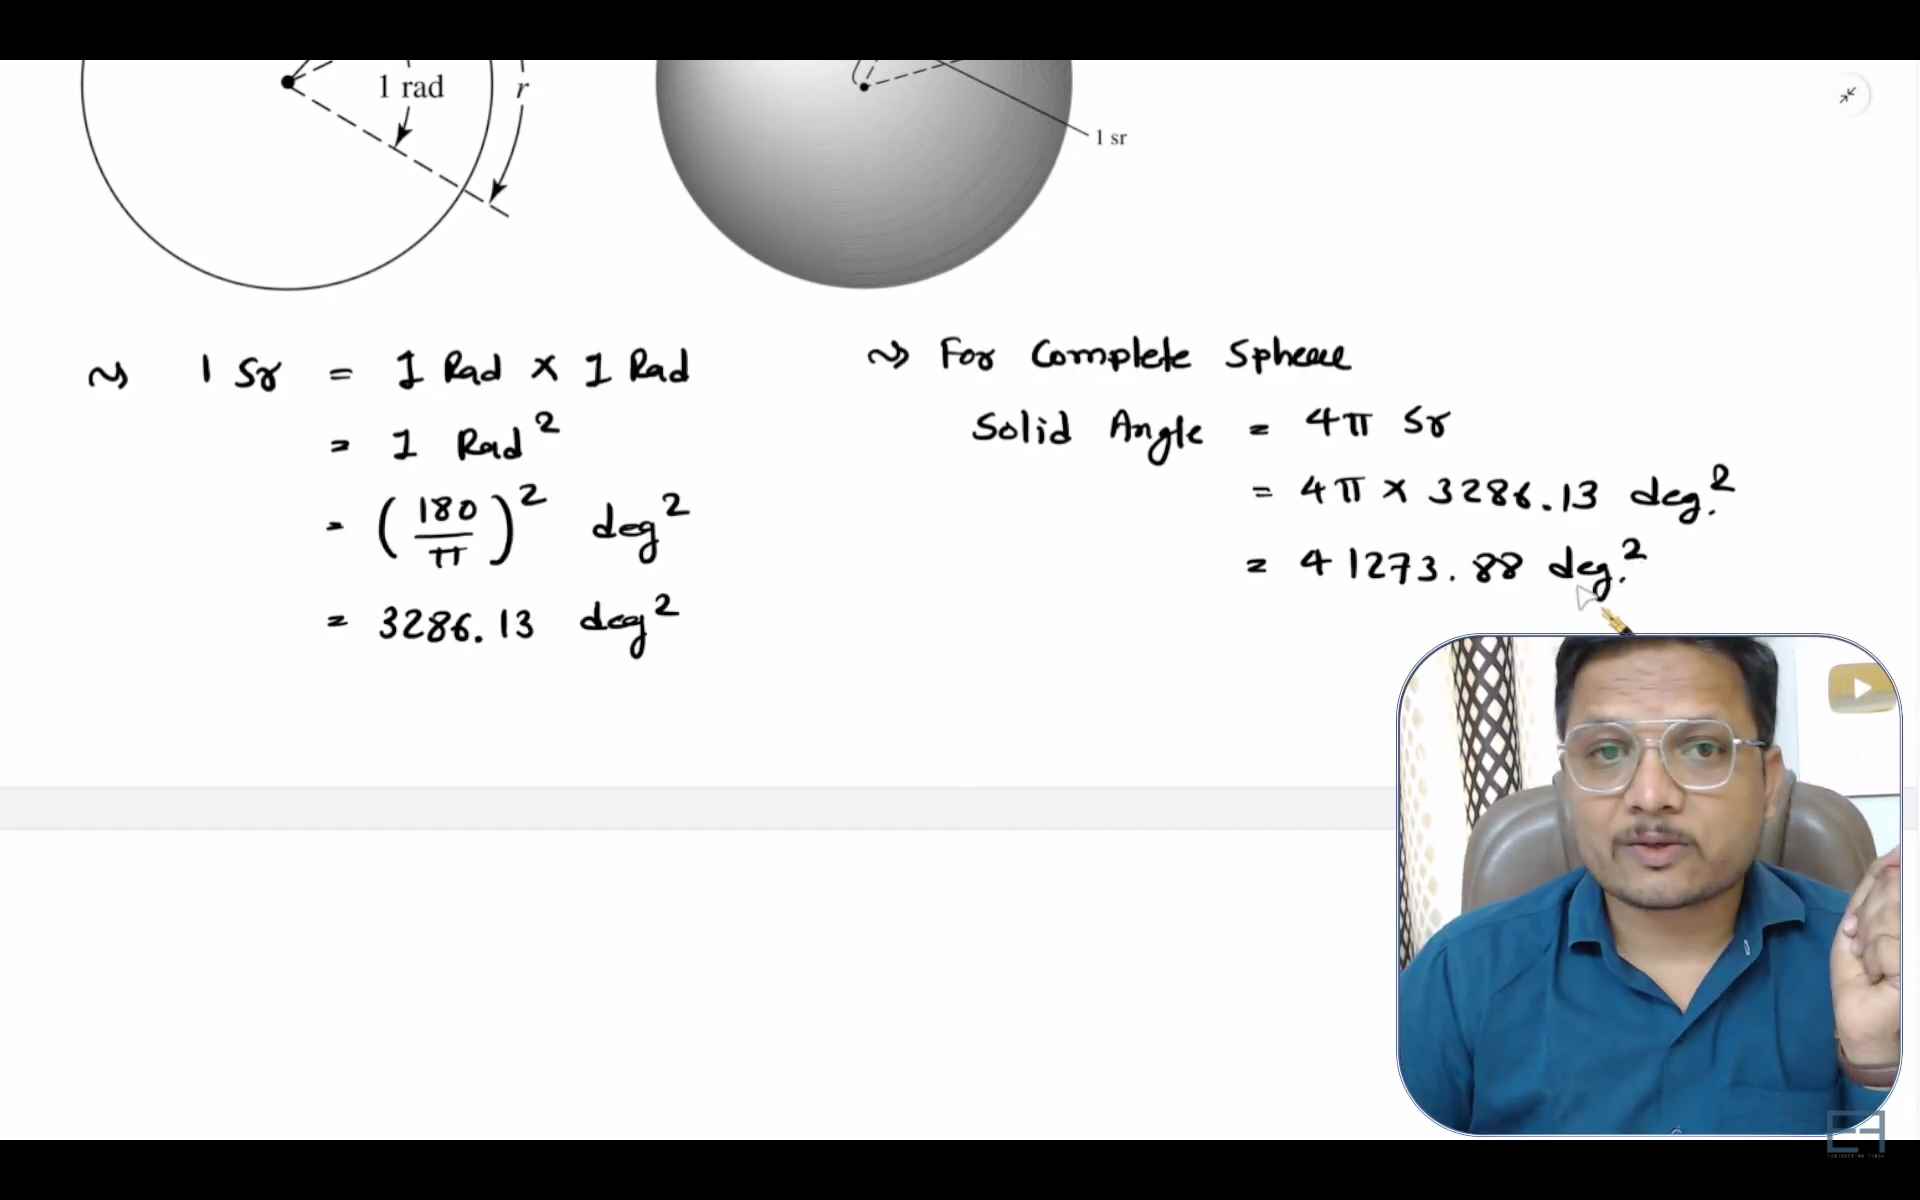 1 rad
r
1 sr
1 Sr = 1 Rad × 1 Rad
= 1 Rad²
= (180/π)² deg²
= 3286.13 deg²
For Complete Sphere
Solid Angle = 4π Sr
= 4π × 3286.13 deg.²
= 41273.88 deg.²